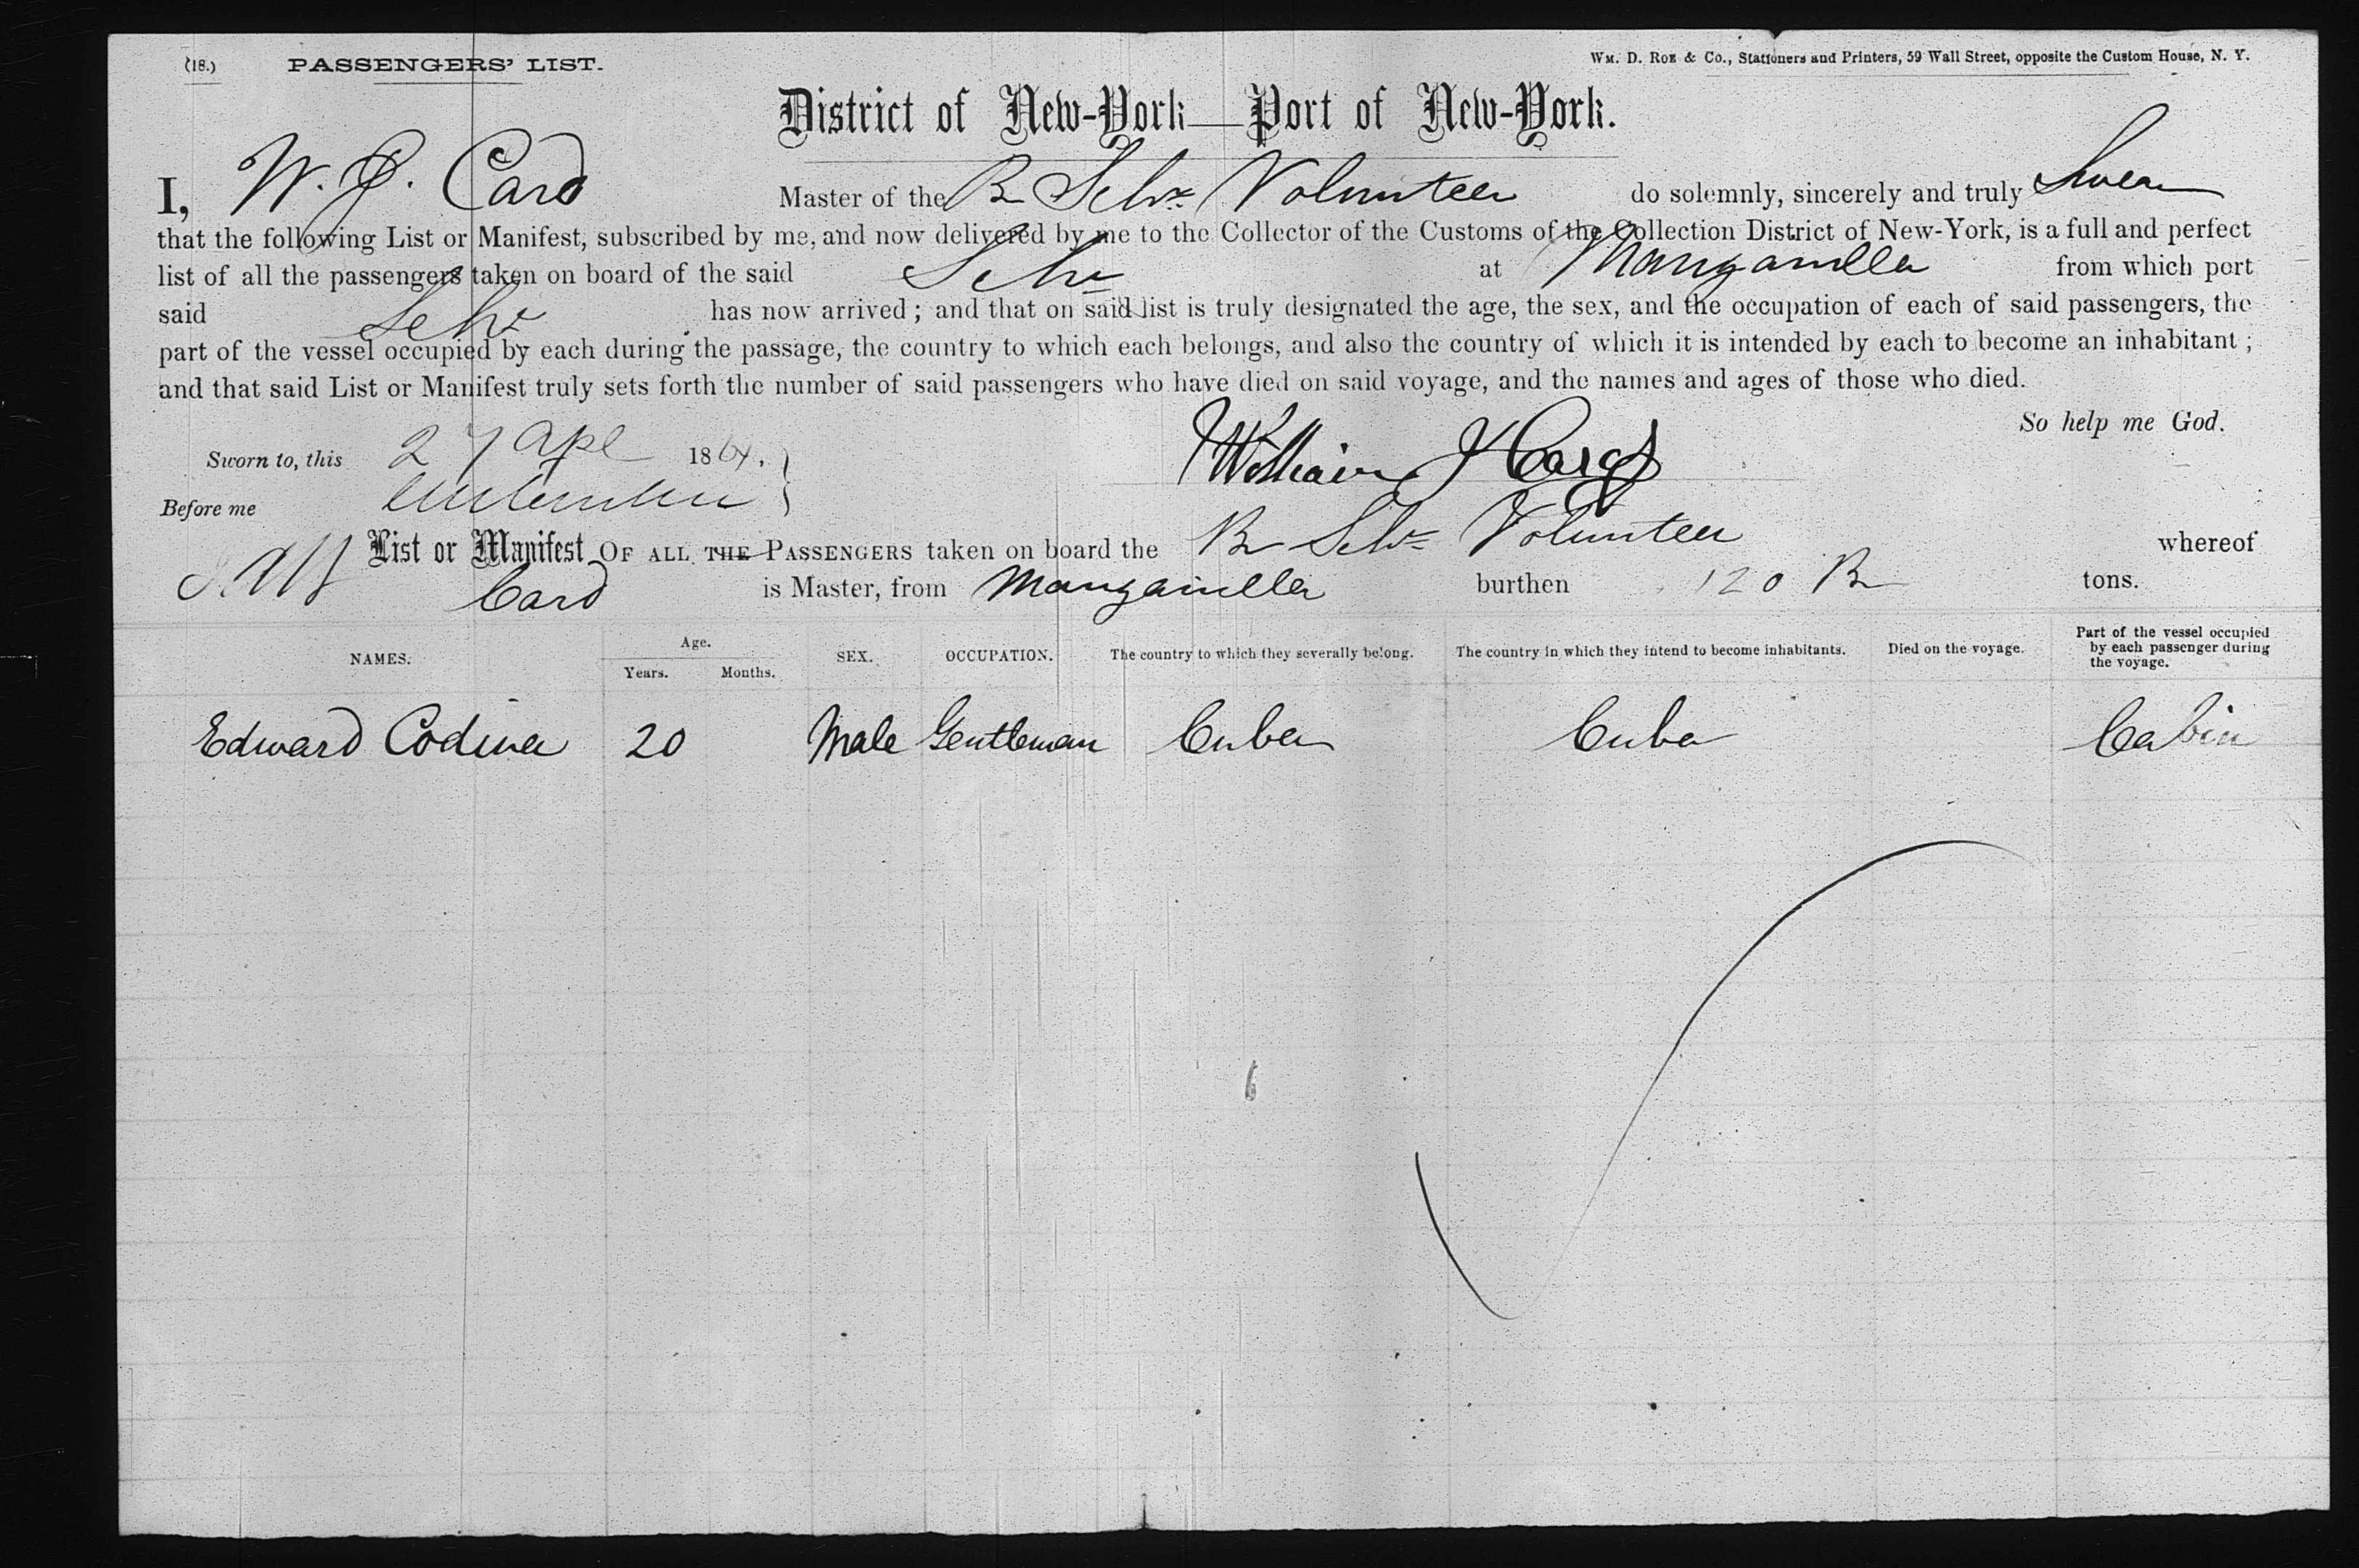 (18.) PASSENGERS' LIST.
WM. D. ROE & Co., Stationers and Printers, 59 Wall Street, opposite the Custom House, N. Y.
District of New-York—Port of New-York.
I, W. J. Card Master of the Br Schr Volunteer do solemnly, sincerely and truly Swear
that the following List or Manifest, subscribed by me, and now delivered by me to the Collector of the Customs of the Collection District of New-York, is a full and perfect
list of all the passengers taken on board of the said Schr at Manzanilla from which port
said Schr has now arrived; and that on said list is truly designated the age, the sex, and the occupation of each of said passengers, the
part of the vessel occupied by each during the passage, the country to which each belongs, and also the country of which it is intended by each to become an inhabitant;
and that said List or Manifest truly sets forth the number of said passengers who have died on said voyage, and the names and ages of those who died.
So help me God.
Sworn to, this 27 Apl 1864.
William J Card
Before me
List or Manifest OF ALL THE PASSENGERS taken on board the Br Schr Volunteer whereof
Card is Master, from Manzanilla burthen 120 Br tons.
NAMES. Age. Years. Months. SEX. OCCUPATION. The country to which they severally belong. The country in which they intend to become inhabitants. Died on the voyage. Part of the vessel occupied by each passenger during the voyage.
Edward Codina 20 Male Gentleman Cuba Cuba Cabin